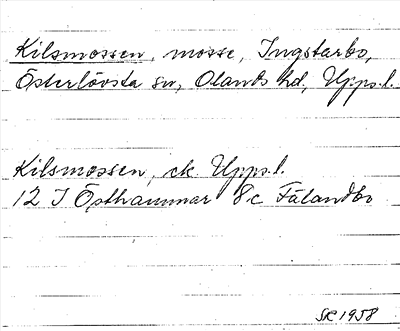 Kilsmossen, mosse, Ingstarbo,
Österlövsta sn, Olands hd, Upps.l.
Kilsmossen, ek. Upps.l.
12 I Östhammar 8c Fälandbo
SK 1958